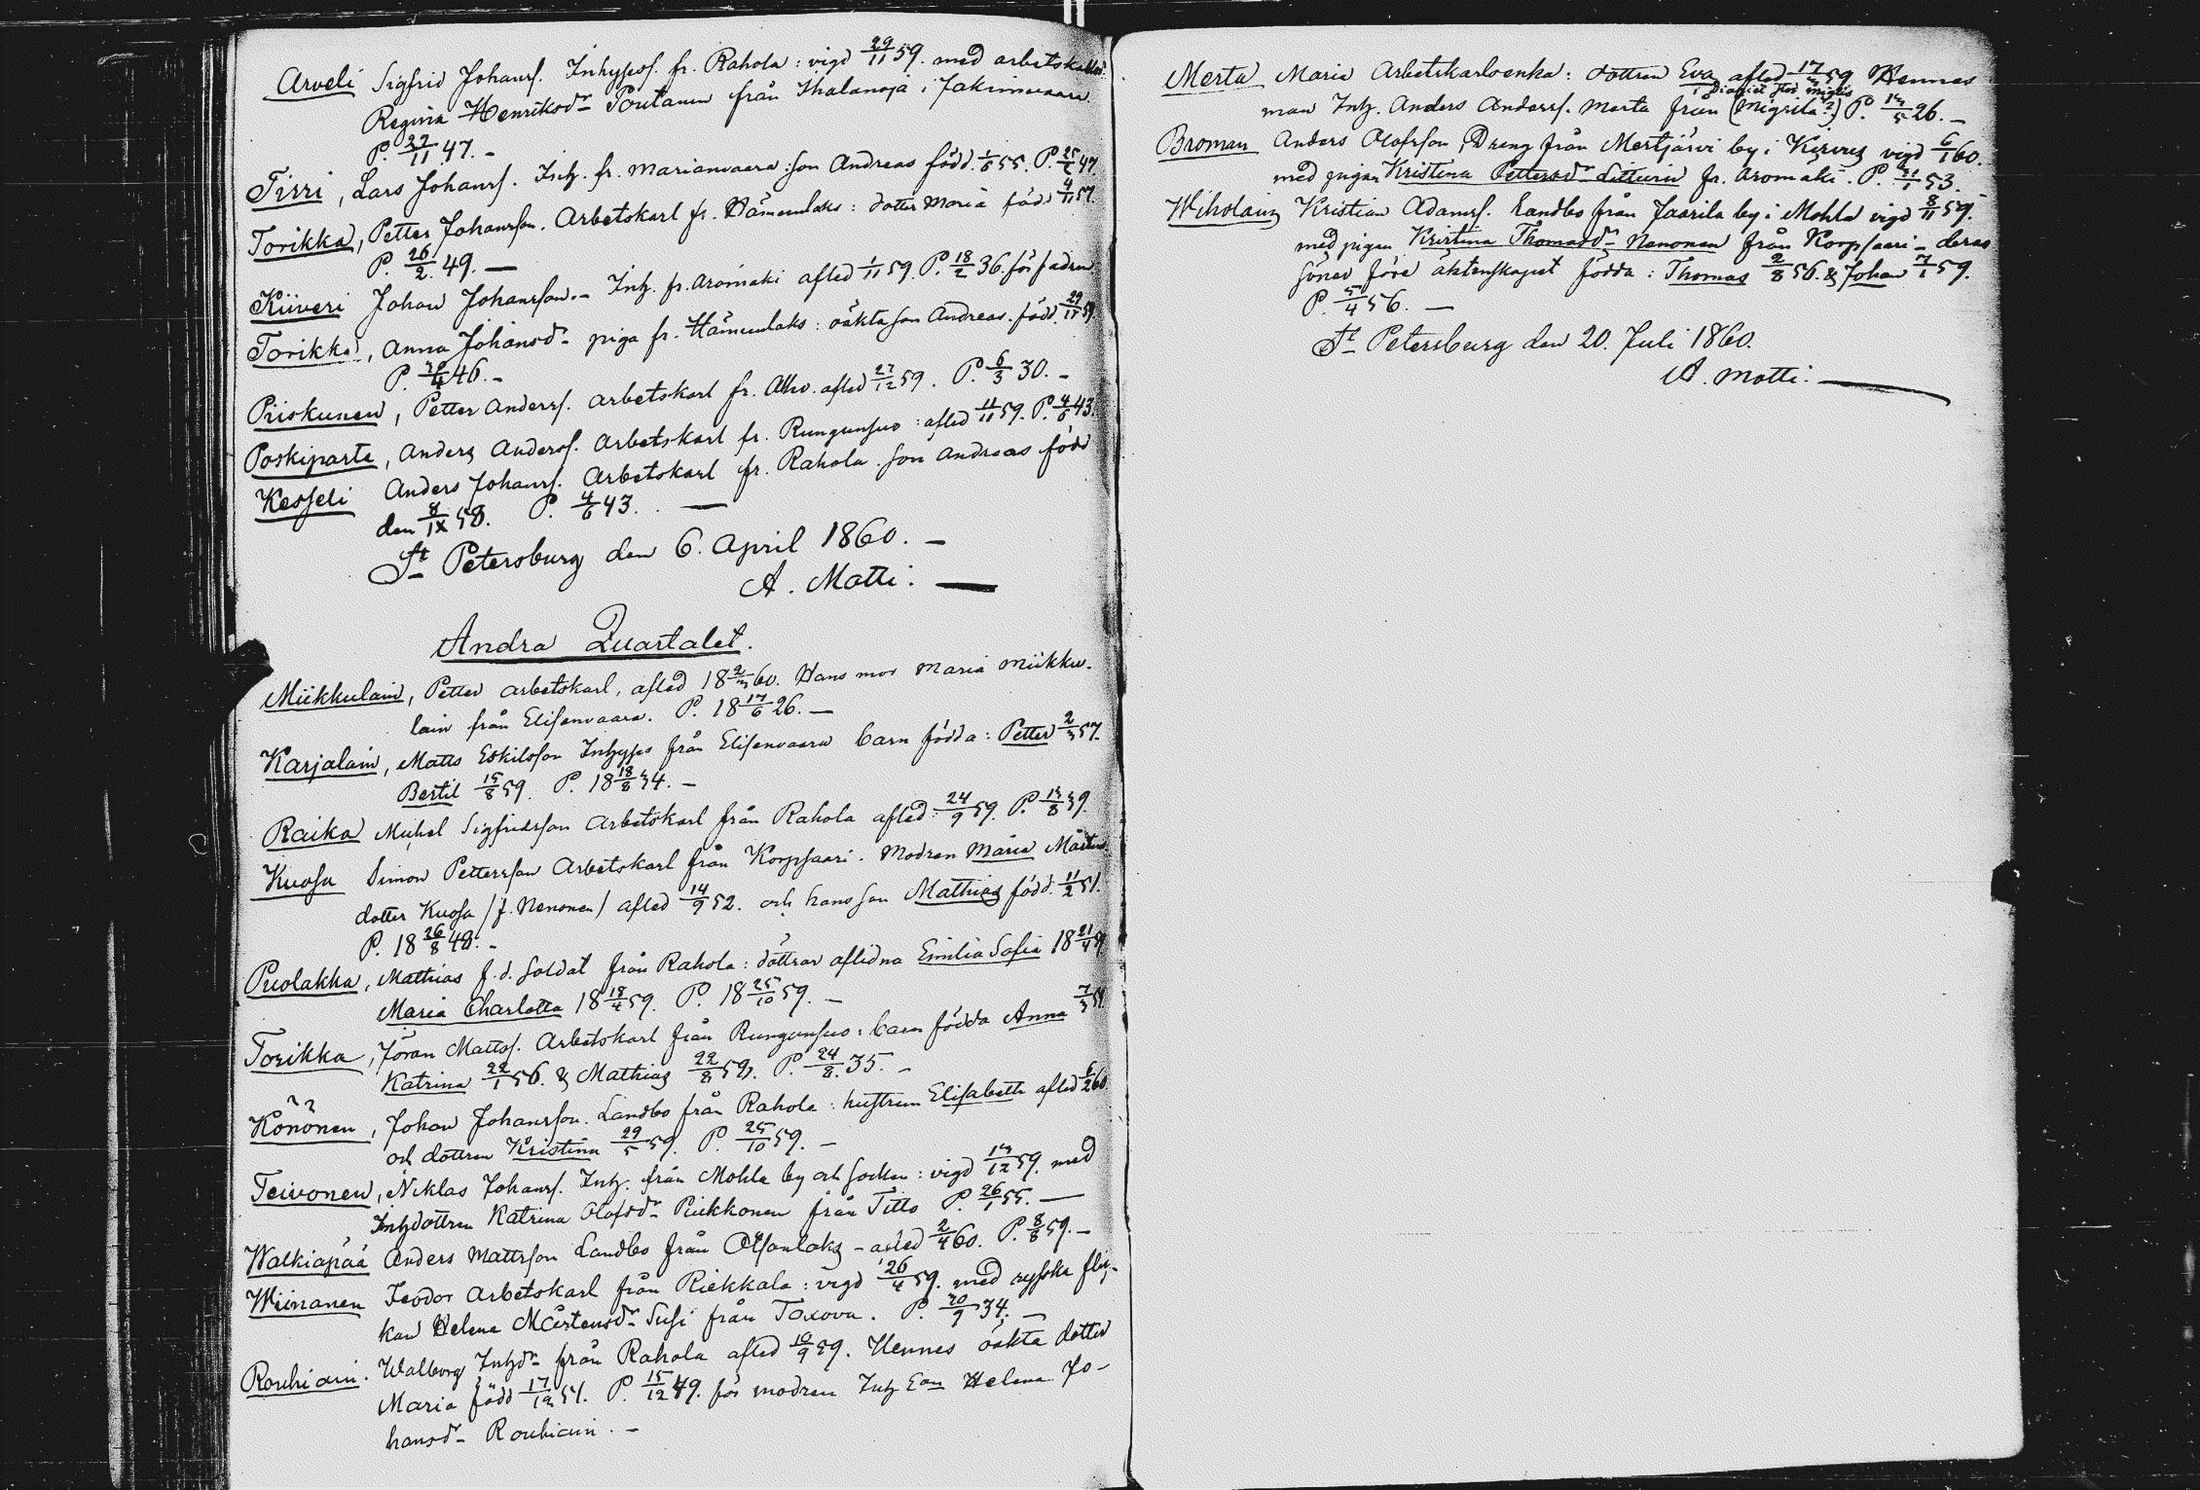 Arveli Sigfrid Johanss. Inhyses. fr. Rahola: vigd 29/11 59. med
Regina Henriksdr Poutanen från Ihalanoja i Jakimvaara
P. 27/11 47. –
Tirri, Lars Johanss. Inh. fr. Marianvaara: son Andreas född 1/5 55. P. 47
Torikka, Petter Johansson. Arbetskarl fr. Hämenlaks: dotter Maria född 4/11 57.
P. 26/2 49. —
Kiiveri Johan Johansson. – Inh. fr. Aromäki afled 1/11 59 P. 18/2 36. för fadren
Torikka, Anna Johansdr – piga fr. Hämenlaks: oäkta son Andreas född 29/11 59.
P. 46. –
Piiskunen, Petter Anderss. Arbetskarl fr. Alho. afled 27/12 59. P. 6/3 30. –
Poskiparta, Anders Anderss. Arbetskarl fr. Rungunsuo: afled 11/11 59. P. 4/6 43.
Kesseli Anders Johanss. Arbetskarl fr. Rahola. Son Andreas född
den 8/IX 58. P. 4/6 43. —
St Petersburg den 6. April 1860. –
A. Matti. —
Andra Quartalet.
Miikkulain, Petter Arbetskarl, afled 18 2/3 60. Hans mor Maria Miikku-
lain från Elisenvaara. P. 18 17/6 26. —
Karjalain, Matts Eskilsson Inhyses från Elisenvaara barn födda: Petter 2/3 57.
Bertil 15/8 59. P. 18 18/8 34. –
Raika Michel Sigfridsson Arbetskarl från Rahola afled 24/9 59. P. 13/8 39.
Kuosa Simon Pettersson Arbetskarl från Korpsaari. Modren Maria Mårtens
dotter Kuosa /f. Nenonen/ afled 14/9 52. och hans son Mathias född. 11/2 51.
P. 18 26/8 48. –
Puolakka, Mathias f. d. Soldat från Rahola: döttrar aflidna Emilia Sofia 18
Maria Charlotta 18 18/4 59. P. 18 25/10 59. –
Torikka, Jöran Mattss. Arbetskarl från Rungunsuo: barn födda Anna
Katrina 22/1 56. & Mathias 22/8 59. P. 24/8. 35. –
Könönen, Johan Johansson. Landbo från Rahola: hustrun Elisabeth afled 6/2 60.
och dottren Kristina 29/5 59. P. 25/10 59. –
Teivonen, Niklas Johanss. Inh. från Mohla by och socken: vigd 13/12 59. med
Inhdottren Katrina Olofsdr Piikkonen från Titto P. 26/1 55. —
Walkiapää Anders Mattsson Landbo från – afled 2/4 60. P. 8/8 59. –
Wiinanen Feodor Arbetskarl från Riekkala: vigd 26/4 59. med ryska flic-
kan Helena Mårtensdr Susi från Toxova. P. 20/9 34. –
Rouhiain. Walborg Inhdr från Rahola afled 10/9 59. Hennes oäkta dotter
Maria född 17/12 51. P. 15/12 49. för modren Inh Helena Jo-
hansdr – Rouhiain. –
Merta Maria Arbetskarlsenka: dottren Eva afled 17/3 59 Hennes
man Inh. Anders Anderss. Merta från (Migrila?) P. 26. –
Broman Anders Olofsson, Dreng från Mertjärvi by i Kirvus vigd 6/1 60.
med pigan Kristina Pettersdr fr. Aromäki. P. 53.
Wiholain Kristian Adamss. Landbo från Jaarila by i Mohla vigd 8/11 59.
med pigan Kristina Thomasdr – Nenonen från Korpsaari – deras
söner före äktenskapet födda: Thomas 2/8 56. & Johan 7/1 59.
P. 5/4 56. —
St Petersburg den 20. Juli 1860.
A. Matti. —